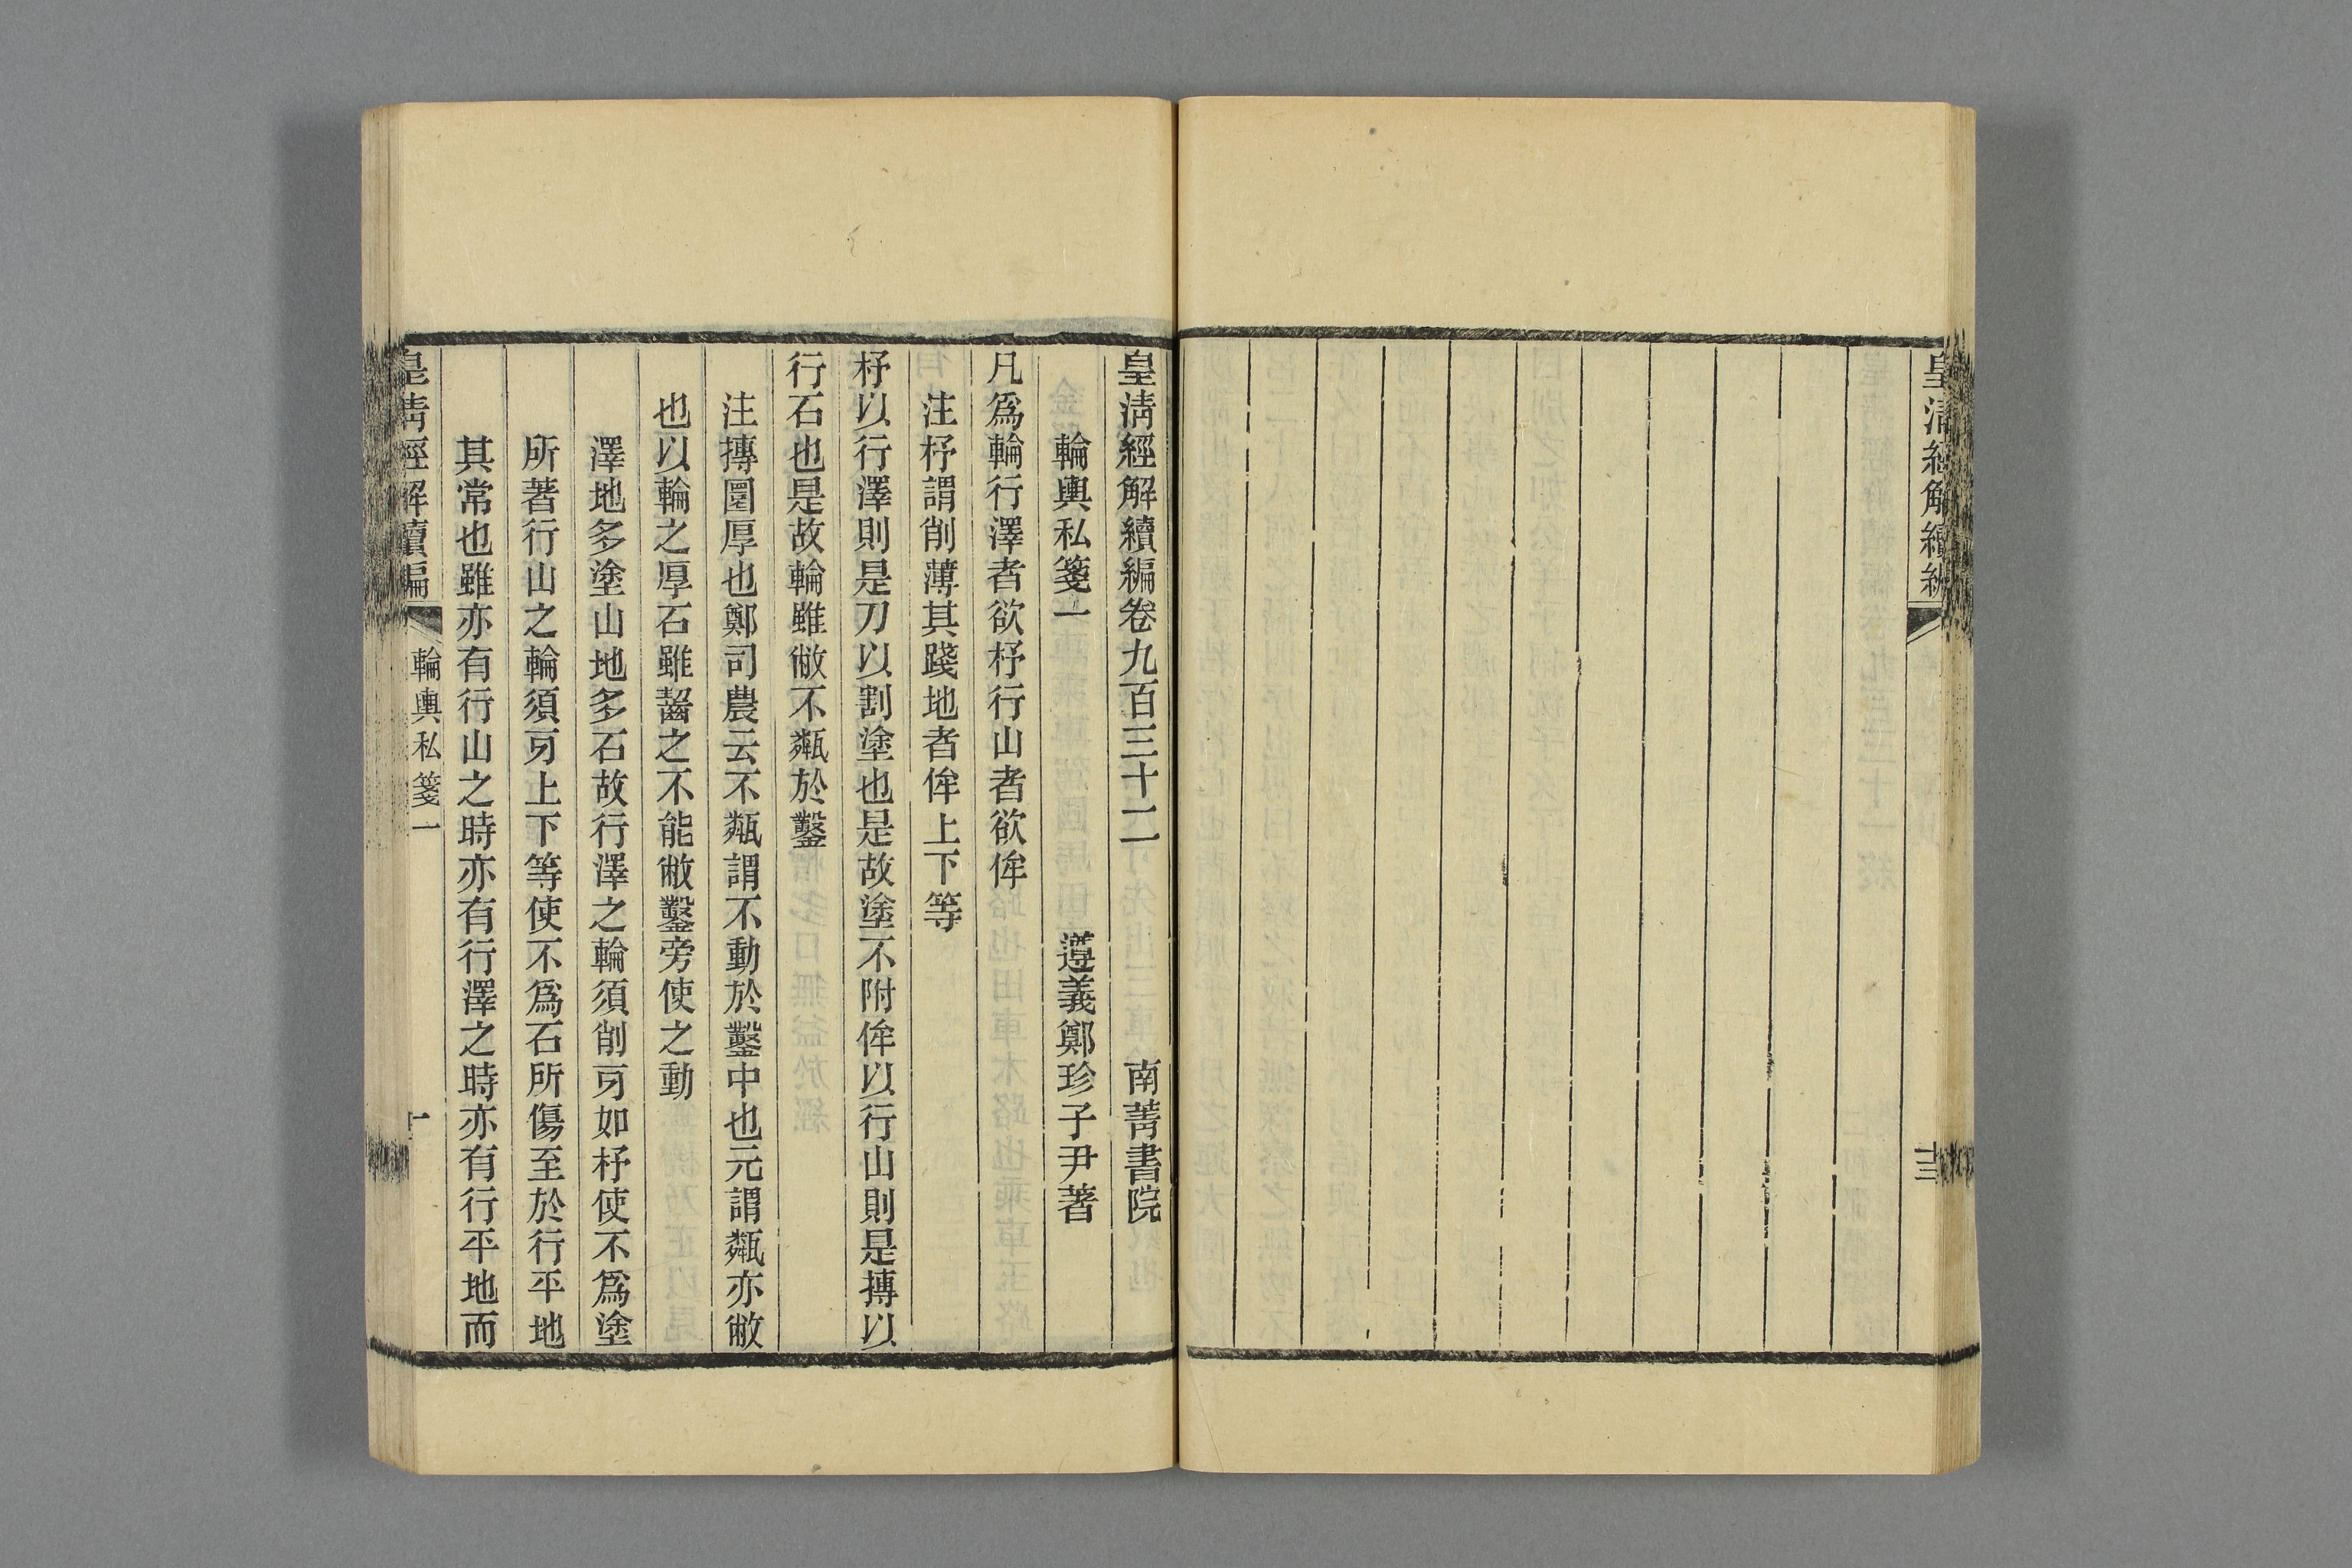 皇清經解續編
十三
皇清經解續編卷九百三十二 南菁書院
輪輿私箋一 遵義鄭珍子尹著
凡爲輪行澤者欲杼行山者欲侔
注杼謂削薄其踐地者侔上下等
杼以行澤則是刀以割塗也是故塗不附侔以行山則是摶以
行石也是故輪雖敝不甐於鑿
注摶圜厚也鄭司農云不甐謂不動於鑿中也元謂甐亦敝
也以輪之厚石雖齧之不能敝鑿旁使之動
澤地多塗山地多石故行澤之輪須削牙如杼使不爲塗
所著行山之輪須牙上下等使不爲石所傷至於行平地
其常也雖亦有行山之時亦有行澤之時亦有行平地而
皇清經解續編 輪輿私箋一